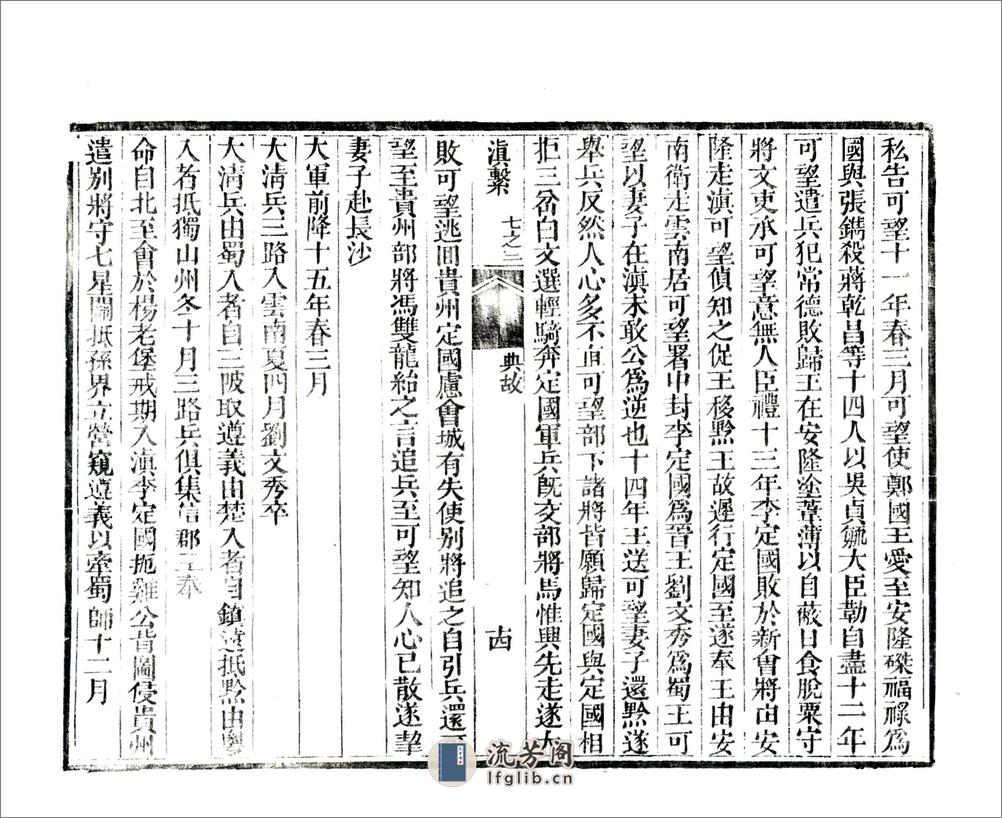 私告可望十一年春三月可望使鄭國王愛至安隆磔福祿爲
國與張鐫殺蔣乾昌等十四人以吳貞毓大臣勒自盡十二年
可望遣兵犯常德敗歸王在安隆塗葦薄以自蔽日食脫粟守
將文吏承可望意無人臣禮十三年李定國敗於新會將由安
隆走滇可望偵知之促王移黔王故遲行定國至遂奉王由安
南衛走雲南居可望署中封李定國爲晉王劉文秀爲蜀王可
望以妻子在滇未敢公爲逆也十四年王送可望妻子還黔遂
舉兵反然人心多不直可望部下諸將皆願歸定國與定國相
拒三岔白文選輕騎奔定國軍兵旣交部將馬惟興先走遂大
滇繫 七之三 典故 十四
敗可望逃回貴州定國慮會城有失使別將追之自引兵還
望至貴州部將馮雙龍紿之言追兵至可望知人心已散遂挈
妻子赴長沙
大軍前降十五年春三月
大淸兵三路入雲南夏四月劉文秀卒
大淸兵由蜀入者自三陂取遵義由楚入者自鎮遠抵黔由粵
入者抵獨山州冬十月三路兵俱集信郡王奉
命自北至會於楊老堡戒期入滇李定國扼雞公背圖侵貴州
遣別將守七星關抵孫界立營窺遵義以牽蜀師十二月
流芳阁
lfglib.cn